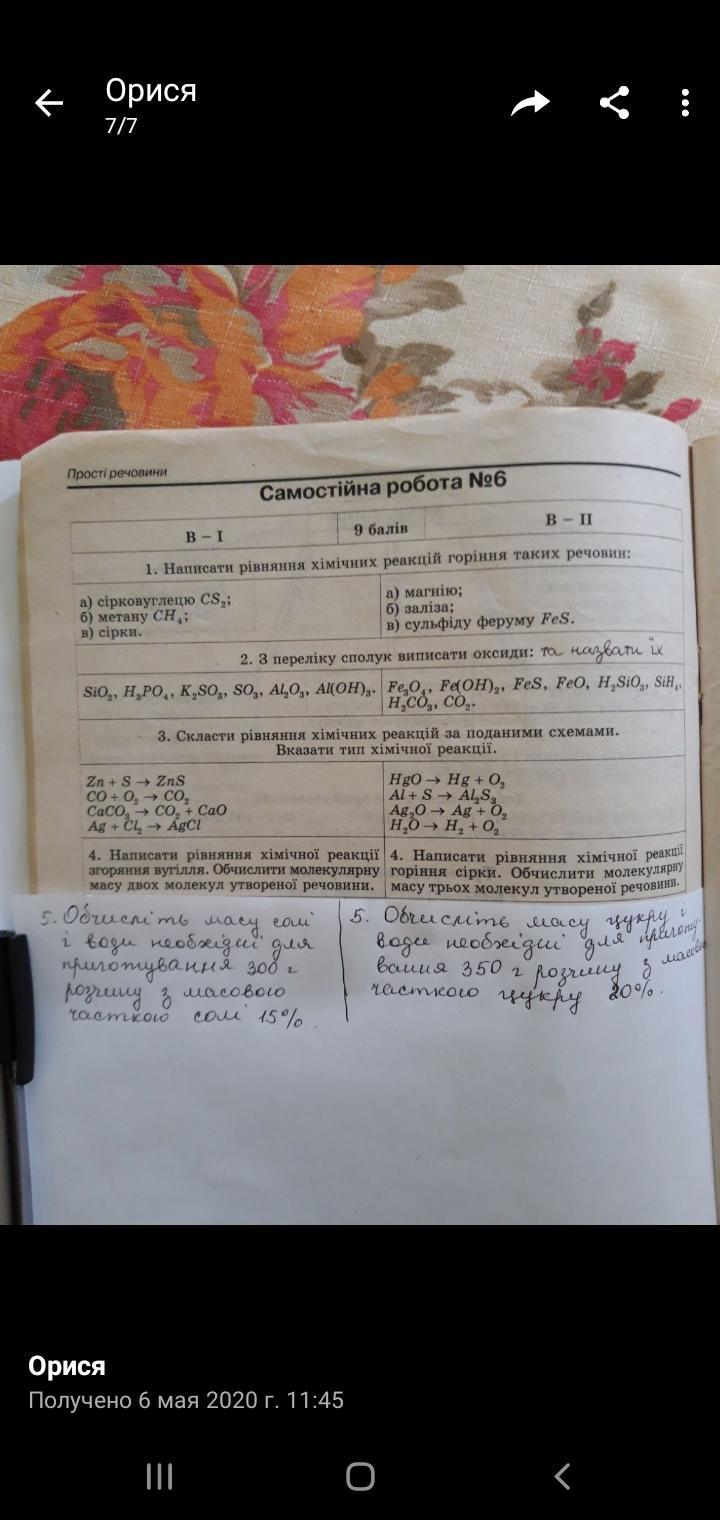 Орися
7/7
Прості речовини
Самостійна робота №6
В – I
9 балів
В – II
1. Написати рівняння хімічних реакцій горіння таких речовин:
а) сірковуглецю CS₂;
б) метану CH₄;
в) сірки.
а) магнію;
б) заліза;
в) сульфіду феруму FeS.
2. З переліку сполук виписати оксиди: та назвати їх
SiO₂, H₃PO₄, K₂SO₃, SO₃, Al₂O₃, Al(OH)₃.
Fe₃O₄, Fe(OH)₂, FeS, FeO, H₂SiO₃, SiH₄,
H₂CO₃, CO₂.
3. Скласти рівняння хімічних реакцій за поданими схемами.
Вказати тип хімічної реакції.
Zn + S → ZnS
CO + O₂ → CO₂
CaCO₃ → CO₂ + CaO
Ag + Cl₂ → AgCl
HgO → Hg + O₂
Al + S → Al₂S₃
Ag₂O → Ag + O₂
H₂O → H₂ + O₂
4. Написати рівняння хімічної реакції
згоряння вугілля. Обчислити молекулярну
масу двох молекул утвореної речовини.
4. Написати рівняння хімічної реакції
горіння сірки. Обчислити молекулярну
масу трьох молекул утвореної речовини.
5. Обчисліть масу солі
і води необхідні для
приготування 300 г
розчину з масовою
часткою солі 15%.
5. Обчисліть масу цукру і
води необхідні для приготу-
вання 350 г розчину з масовою
часткою цукру 20%.
Орися
Получено 6 мая 2020 г. 11:45